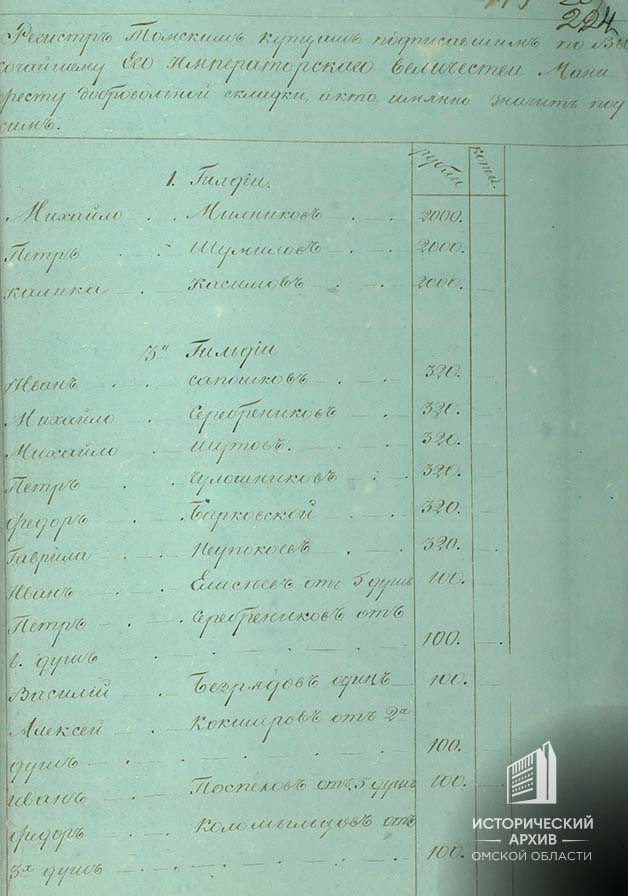 224
Регистръ Томскимъ купцамъ подписавшимъ по Вы
сочайшему Его Императорскаго величества Мани
фесту добровольной складки, а кто имянно значитъ под
симъ.
рубли копей.
1. Гилдіи.
Михайло Милниковъ 2000.
Петръ Шумиловъ 2000.
халика касимовъ 2000.
3й Гильдіи
Иванъ сапошковъ 320.
Михайло Серебрениковъ 320.
Михайло шутовъ. 320.
Петръ Чулошниковъ 320.
федоръ Барковской 320.
Гаврила 320.
Иванъ Елисѣевъ отъ 5 душъ 100.
Петръ Серебрениковъ отъ
6. душъ 100.
Василій Безрядовъ одинъ 100.
Алексей отъ 2хъ
душъ 100.
иванъ Поспеловъ отъ 5 душъ 100.
федоръ Коломыльцовъ отъ
3хъ душъ 100.
ИСТОРИЧЕСКИЙ
АРХИВ
ОМСКОЙ ОБЛАСТИ